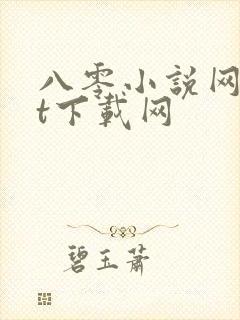 八零小説网
t下載网
碧玉蕭